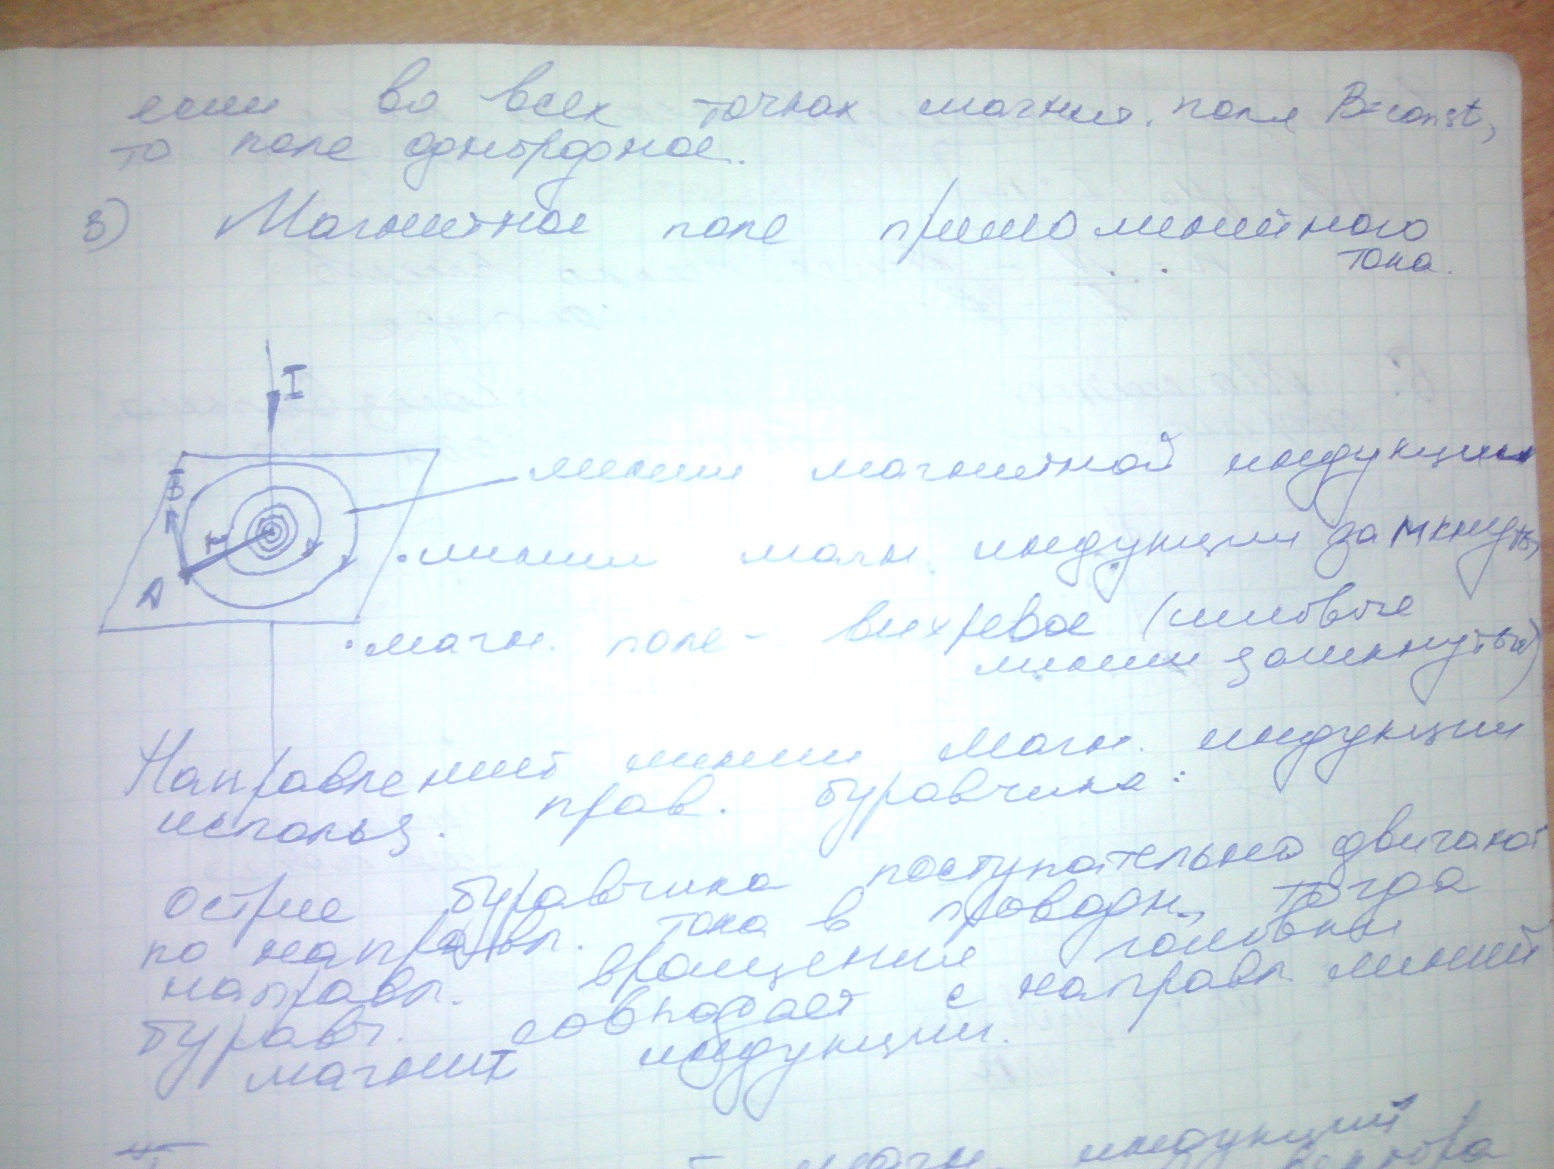 если во всех точках магнит. поля B=const,
то поле однородное.
3) Магнитное поле прямолинейного
тока.
I
B
r
A
линии магнитной индукции
• линии магн. индукции замкнуты
• магн. поле - вихревое (силовые
линии замкнуты)
Направлений линии магн. индукции
использ. прав. буравчика:
острие буравчика поступательно двигают
по направл. тока в проводн., тогда
направл. вращения головки
буравч. совпадает с направл. линий
магнит индукции.
магн. индукций